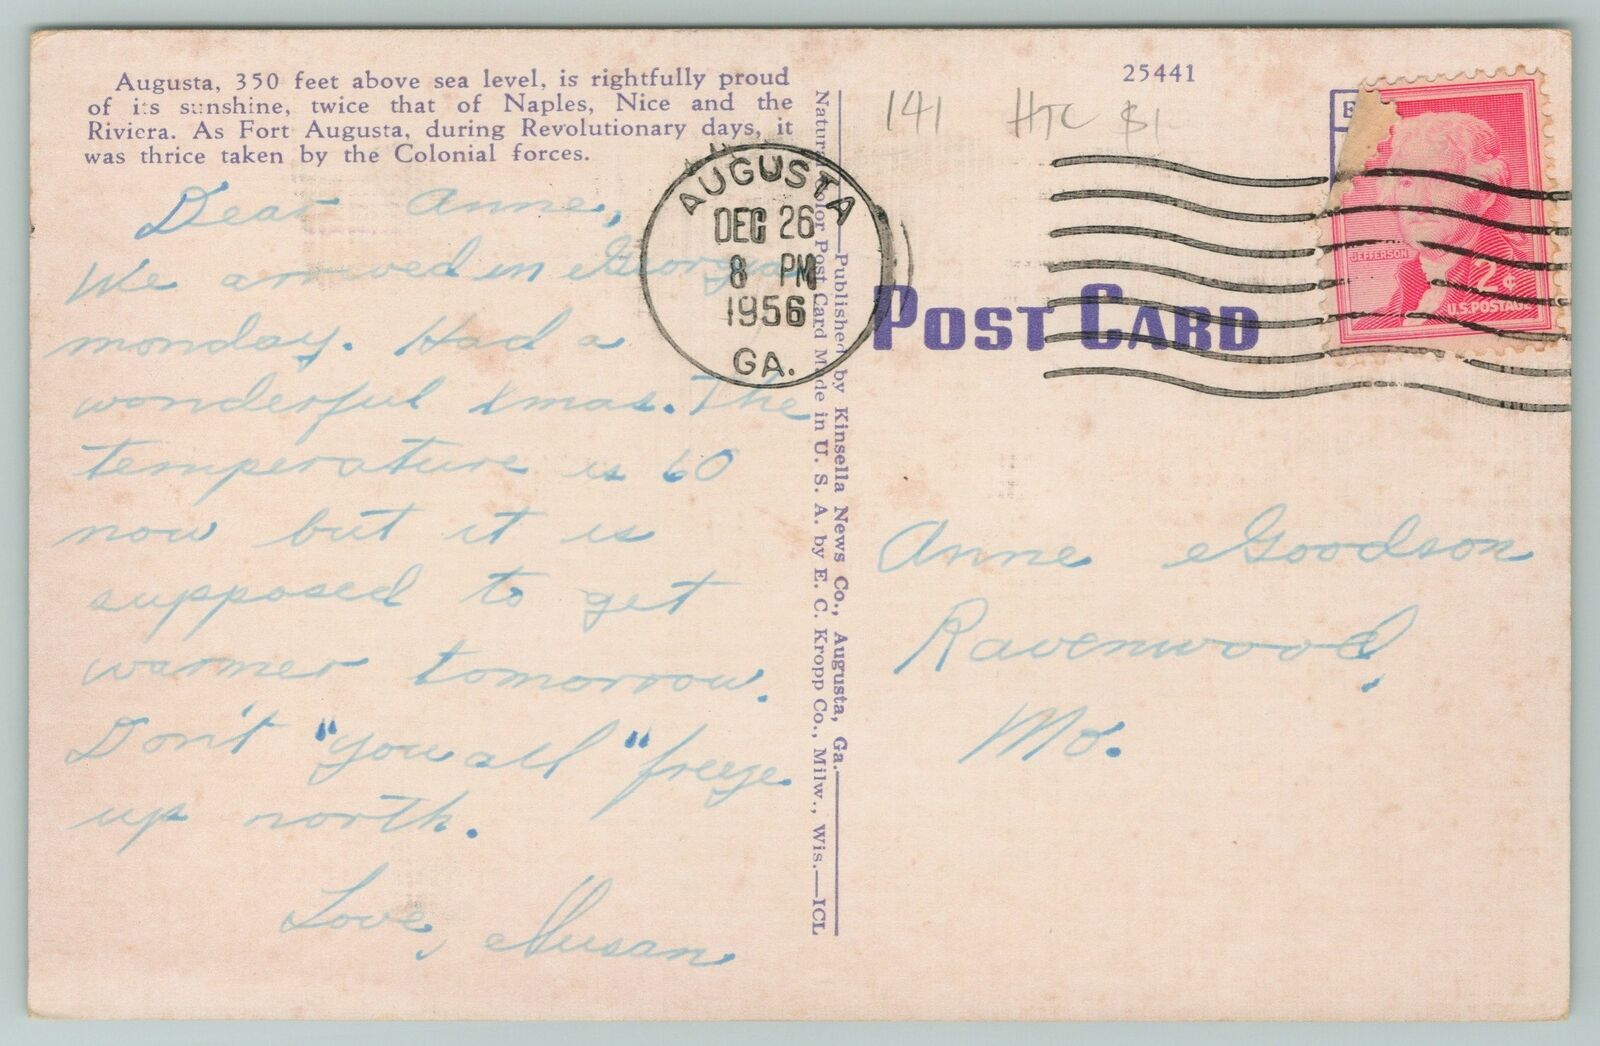 Augusta, 350 feet above sea level, is rightfully proud
of its sunshine, twice that of Naples, Nice and the
Riviera. As Fort Augusta, during Revolutionary days, it
was thrice taken by the Colonial forces.
Dear Anne,
We arrived in Georgia
monday. Had a
wonderful Xmas. The
temperature is 60
now but it is
supposed to get
warmer tomorrow.
Don't "you all" freeze
up north.
Love, Susan
AUGUSTA
DEC 26
8 PM
1956
GA.
Natural Color Post Card Made in U. S. A. by E. C. Kropp Co., Milw., Wis.—ICL
—Published by Kinsella News Co., Augusta, Ga.—
25441
141 HTC $1
JEFFERSON
2¢
U.S. POSTAGE
POST CARD
Anne Goodson
Ravenwood,
Mo.